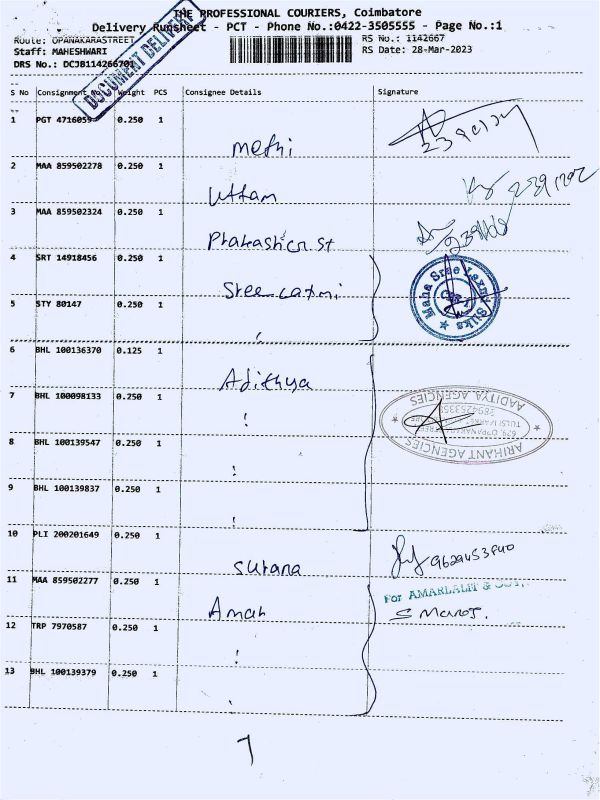 THE PROFESSIONAL COURIERS, Coimbatore
Delivery Runsheet - PCT - Phone No.:0422-3505555 - Page No.:1
Route: OPANAKARASTREET RS No.: 1142667
Staff: MAHESHWARI RS Date: 28-Mar-2023
DRS No.: DCJB114266701
DOCUMENT DELIVERY
S No Consignment No Weight PCS Consignee Details Signature
1 PGT 4716059 0.250 1
Methi
2 MAA 859502278 0.250 1
Uttam
3 MAA 859502324 0.250 1
4 SRT 14918456 0.250 1
Sree Laxmi
Maha Sree Laxmi Silks
5 STY 80147 0.250 1
6 BHL 100136370 0.125 1
Adithya
7 BHL 100098133 0.250 1
AADITYA AGENCIES
ARIHANT AGENCIES
8 BHL 100139547 0.250 1
9 BHL 100139837 0.250 1
10 PLI 200201649 0.250 1
Surana
11 MAA 859502277 0.250 1
For AMARLALIT &
Amar S Manoj.
12 TRP 7970587 0.250 1
13 BHL 100139379 0.250 1
7